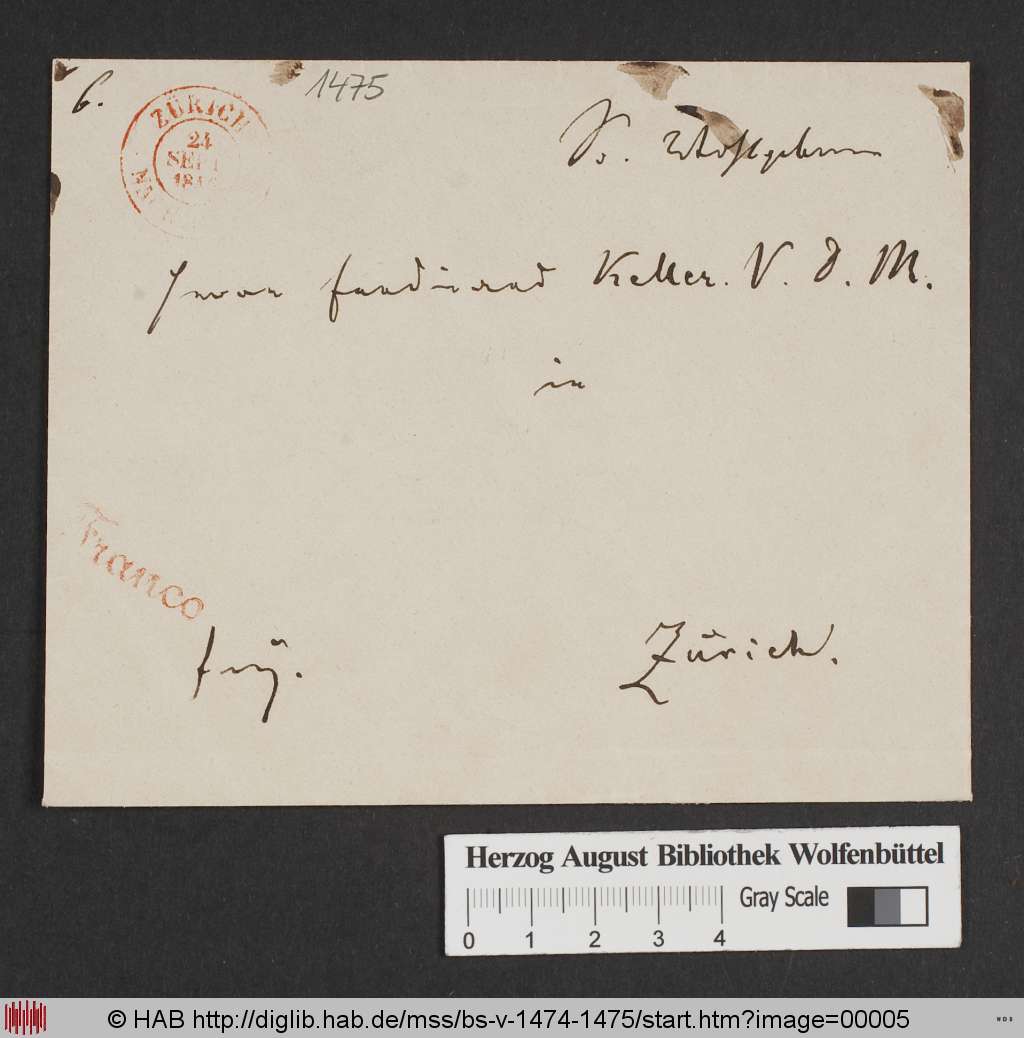 6.
1475
ZÜRICH
24
SEPT
Sr. Wohlgeborn
Herrn Ferdinand Keller. V. D. M.
in
Franco
frey.
Zürich.
Herzog August Bibliothek Wolfenbüttel
Gray Scale
0 1 2 3 4
© HAB http://diglib.hab.de/mss/bs-v-1474-1475/start.htm?image=00005
WDB